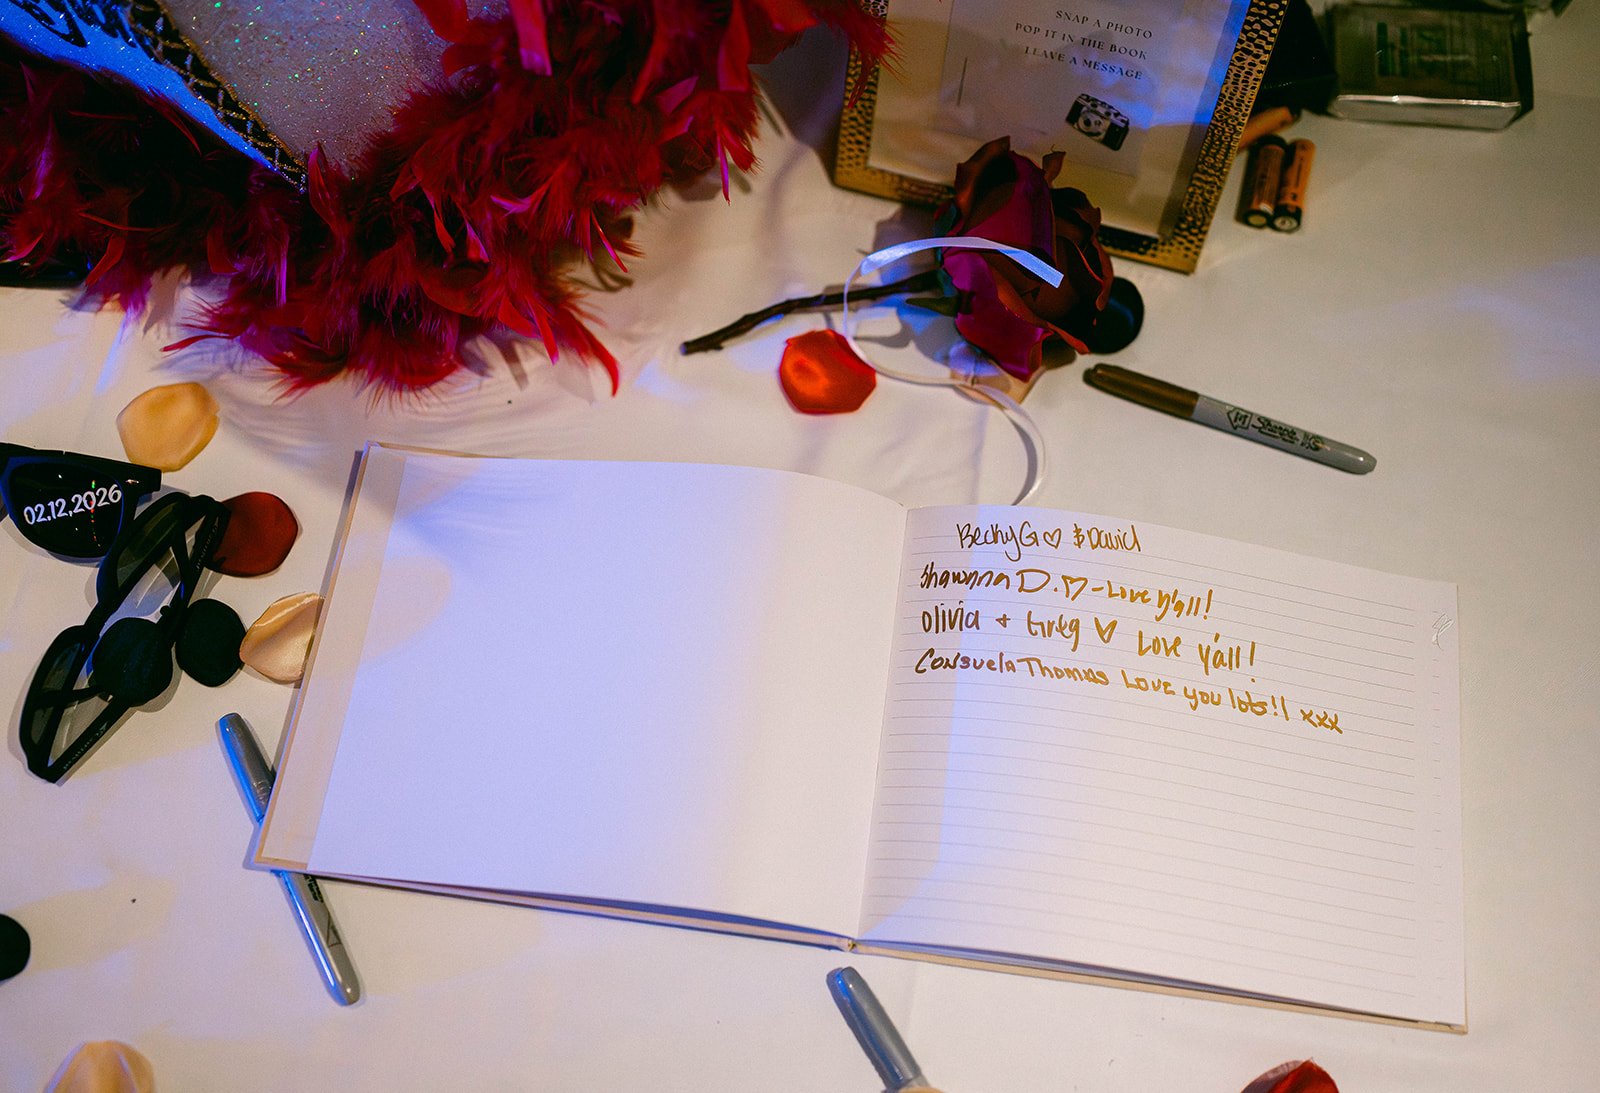 SNAP A PHOTO
POP IT IN THE BOOK
LEAVE A MESSAGE
Sharpie
02.12.2026
BeckyG ♡ & David
Shawnna D. ♡ - Love y'all!
Olivia + Greg ♡ Love y'all!
Consuela Thomas Love you lots!! xxx